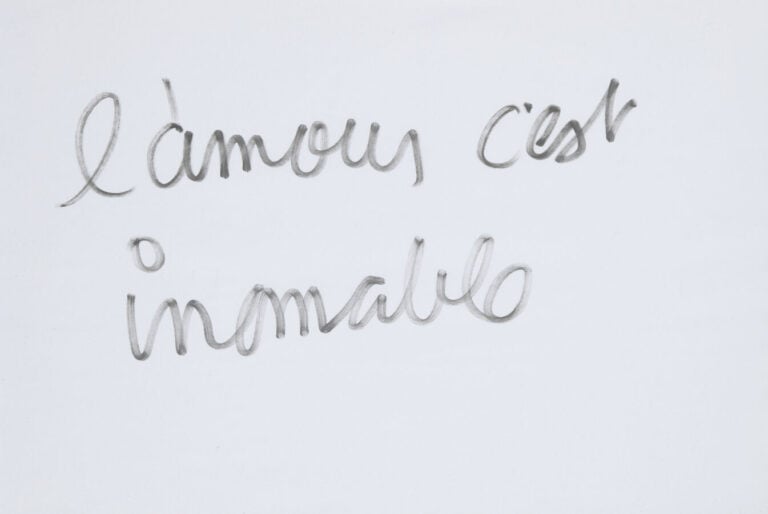 l'amour c'est
inomable